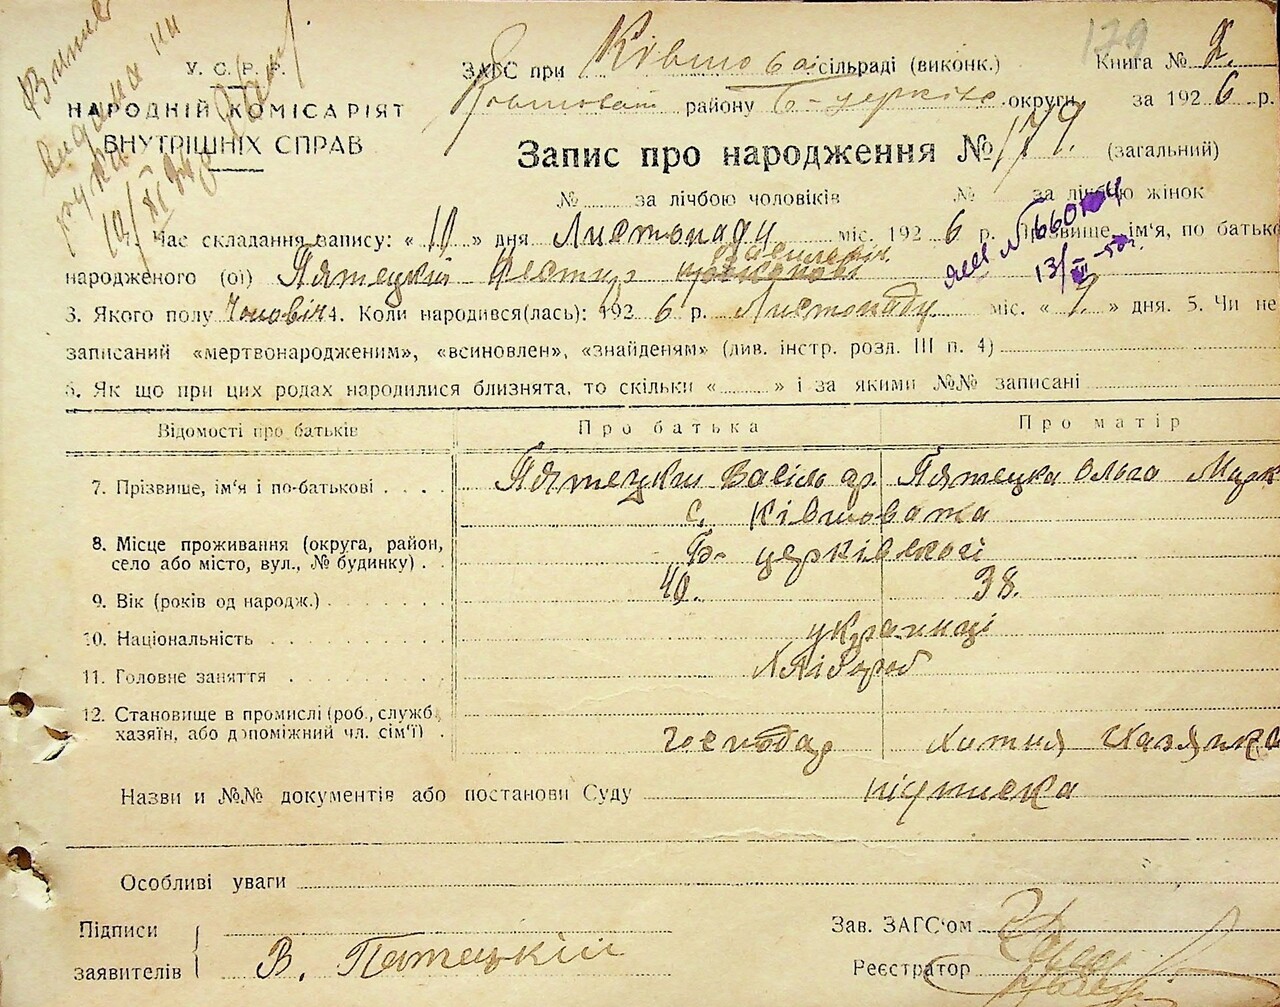 У. С. Р. Р.
НАРОДНІЙ КОМІСАРІЯТ
ВНУТРІШНІХ СПРАВ
ЗАГС при Ківшоватс. сільраді (виконк.) Книга № 2.
району Б-церківс. округи за 1926 р.
179
Запис про народження № 179. (загальний)
№ за лічбою чоловіків № за лічбою жінок
Час складання запису: « 10 » дня Листопаду міс. 1926 р. Прізвище, ім'я, по батьков
народженого (ої) Пятецкій
3. Якого полу Чоловіч 4. Коли народився(лась): 1926 р. Листопаду міс. « 7. » дня. 5. Чи не
записаний «мертвонародженим», «всиновлен», «знайденям» (див. інстр. розд. III п. 4)
6. Як що при цих родах народилися близнята, то скільки « » і за якими №№ записані
Відомості про батьків Про батька Про матір
7. Прізвище, ім'я і по-батькові Пятецкий Васіль Пятецка Ольга
с. Ківшовата
8. Місце проживання (округа, район, село або місто, вул., № будинку) Б-церківської
9. Вік (років од народж.) 40. 38.
10. Національність українці
11. Головне заняття Хлібороб
12. Становище в промислі (роб., служб., хазяїн, або допоміжний чл. сім'ї) Господар Хатня Хазяйка
Назви и №№ документів або постанови Суду
Особливі уваги
Підписи
заявителів В. Пятецький
Зав. ЗАГС'ом
Реєстратор